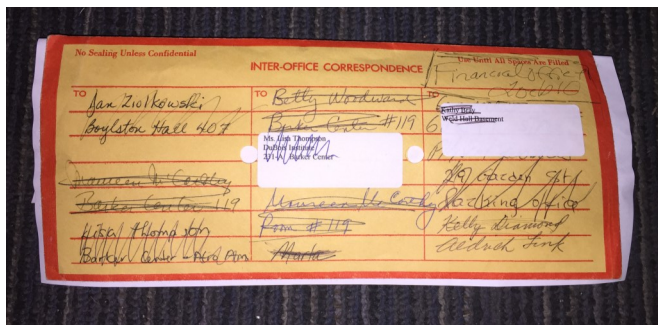 No Sealing Unless Confidential
Use Until All Spaces Are Filled
INTER-OFFICE CORRESPONDENCE
Financial Office
TO
Jan Ziolkowski
Boylston Hall 407
Maureen McCarthy
Barker Center 119
Thompson
Barker Center - Afro Am
TO
Betty Woodward
Barker Center #119
Ms. Lisa Thompson
DuBois Institute
Barker Center
Maureen McCarthy
Room # 119
Maria
TO
Kathy
Weld Hall Basement
29 Garden St
Parking Office
Kelly Diamond
Aldrich